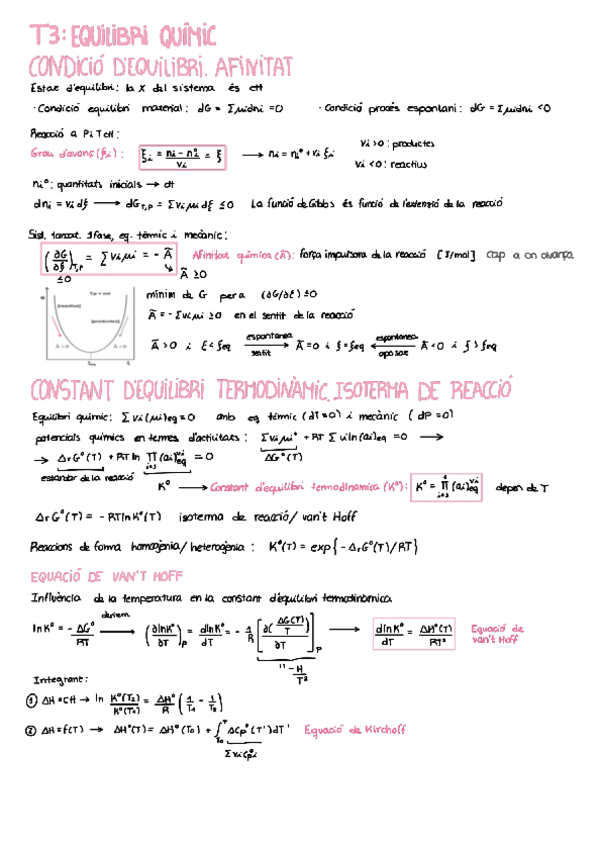 T3: EQUILIBRI QUÍMIC
CONDICIÓ D'EQUILIBRI. AFINITAT
Estat d'equilibri: la X del sistema és ctt
· Condició equilibri material: dG = Σμidni = 0 · Condició procés espontani: dG = Σμidni < 0
Reacció a P i T ctt:
Grau d'avanç (ξi): ξi = ni - ni° / νi = ξ → ni = ni° + νi ξi νi > 0: productes
νi < 0: reactius
ni°: quantitats inicials → ctt
dni = νi dξ → dG T,P = Σνiμi dξ ≤ 0 La funció de Gibbs és funció de l'extensió de la reacció
Sist. tancat. 1 fase, eq. tèrmic i mecànic:
(∂G/∂ξ)T,P = Σνiμi = - Ã Afinitat química (Ã): força impulsora de la reacció [J/mol] cap a on avança
≤0 Ã ≥ 0
mínim de G per a (∂G/∂ξ) ≤ 0
Ã = - Σνiμi ≥ 0 en el sentit de la reacció
Ã > 0 i ξ < ξeq espontanea sentit → Ã = 0 i ξ = ξeq ← espontanea oposat Ã < 0 i ξ > ξeq
CONSTANT D'EQUILIBRI TERMODINÀMIC. ISOTERMA DE REACCIÓ
Equilibri químic: Σνi(μi)eq = 0 amb eq. tèrmic (dT = 0) i mecànic (dP = 0)
potencials químics en termes d'activitats: Σνiμi° + RT Σνi ln(ai)eq = 0 →
ΔG°(T)
→ ΔrG°(T) + RT ln Π(ai)eq^νi = 0
estandar de la reacció K° → Constant d'equilibri termodinamica (K°): K° = Π(ai)eq^νi depen de T
ΔrG°(T) = - RT ln K°(T) isoterma de reacció / van't Hoff
Reaccions de forma homogènia / heterogènia: K°(T) = exp{- ΔrG°(T)/RT}
EQUACIÓ DE VAN'T HOFF
Influència de la temperatura en la constant d'equilibri termodinamica
ln K° = - ΔG°/RT derivem → (∂lnK°/∂T)P = dlnK°/dT = - 1/R [∂(ΔG(T)/T)/∂T]P → dlnK°/dT = ΔH°(T)/RT² Equació de van't Hoff
" - H/T²
Integrant:
① ΔH = ctt → ln K°(T2)/K°(T1) = ΔH°/R (1/T1 - 1/T2)
② ΔH = f(T) → ΔH°(T) = ΔH°(T0) + ∫T0 T ΔCp°(T')dT' Equació de Kirchoff
ΣνiCp°i